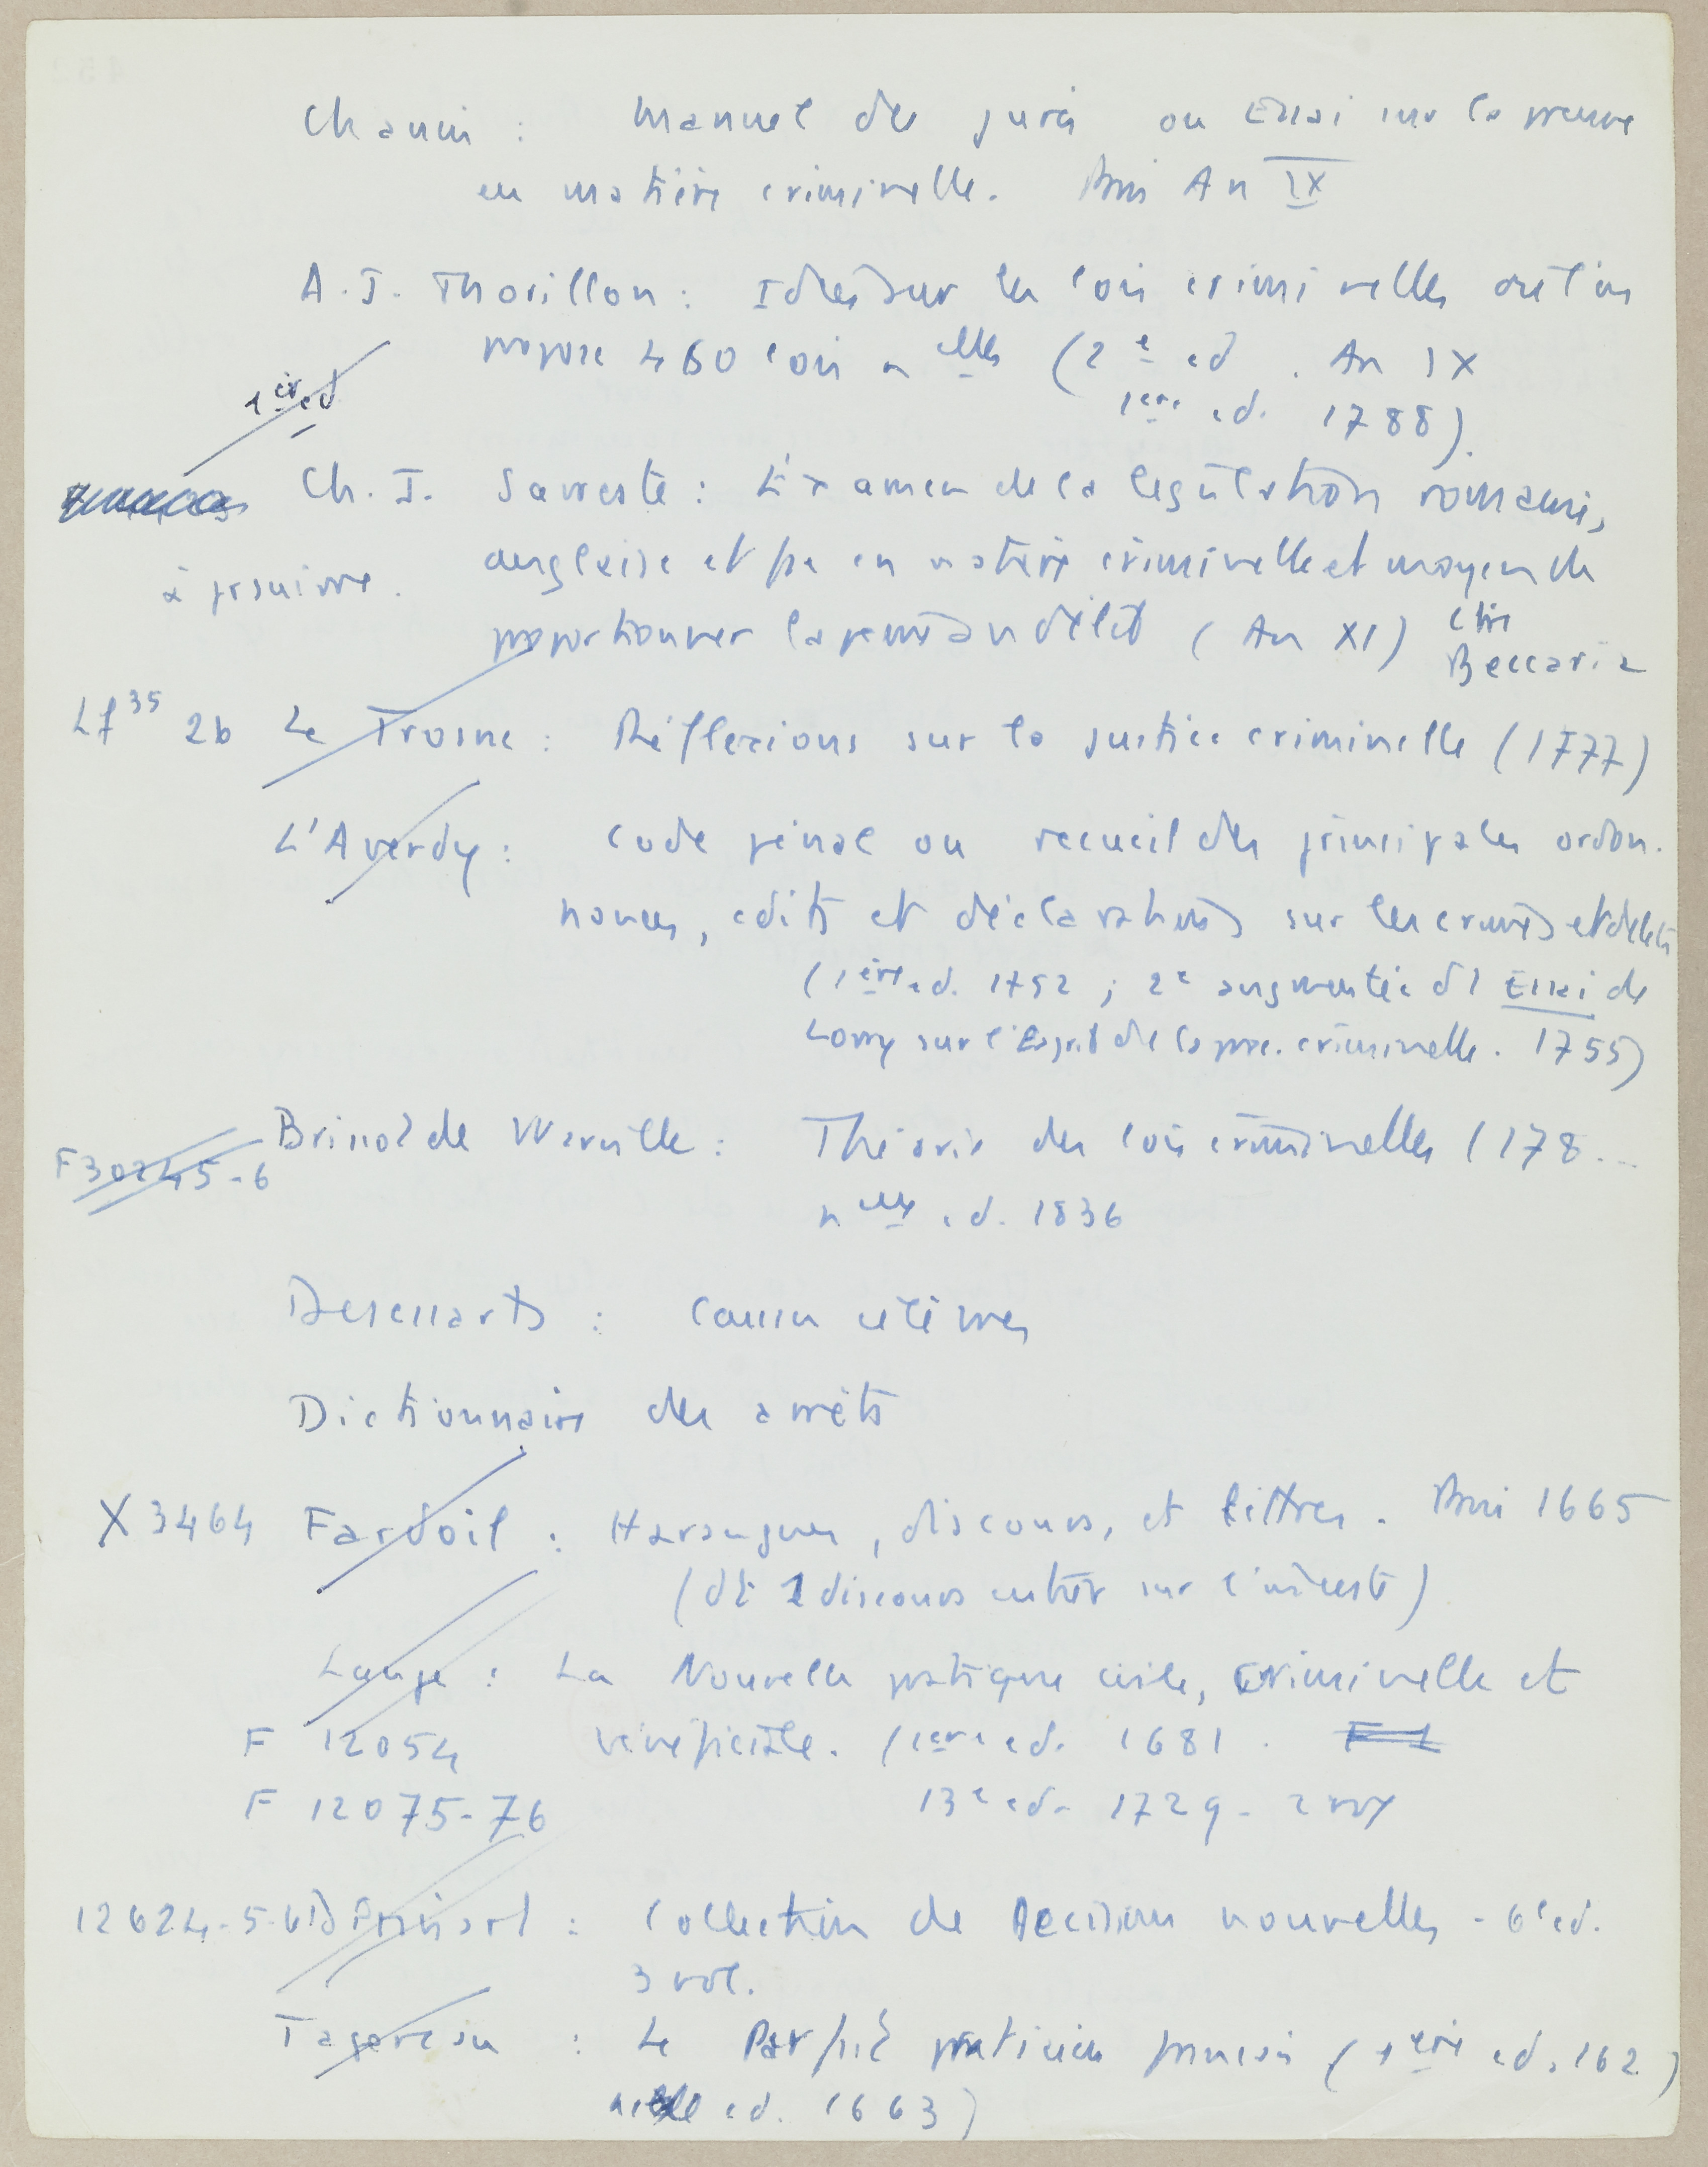 Chauvin : Manuel des jurés ou Essai sur la preuve
en matière criminelle. Paris An IX
A. J. Thorillon : Idées sur les lois criminelles où l'on
propose 460 lois nelles (2e ed. An IX
1ère ed. 1788).
1ère ed
Ch. J. Savreste : L'Examen de la législation romaine,
anglaise et fse en matière criminelle et moyen de
à poursuivre.
proportionner la peine au délit (An XI) Cite
Beccaria
Lf35 2b Le Trosne : Réflexions sur la justice criminelle (1777)
L'Averdy : Code pénal ou recueil des principales ordon.
nances, édits et déclarations sur les crimes et délits
(1ère ed. 1752 ; 2e augmentée d'1 Essai de
Lorry sur l'Esprit de la proc. criminelle. 1755)
Brissot de Warville : Théorie des lois criminelles (178...
F30245-6
nelle ed. 1836
Desessarts : Causes célèbres
Dictionnaire des arrêts
X 3464 Fardoil : Harangues, discours, et lettres. Paris 1665
(dt 1 discours entier sur l'inceste)
Lange : La Nouvelle pratique civile, criminelle et
F 12054 bénéficiale. (1ère ed. 1681. F 1
F 12075-76 13e ed. 1729 - 2 vol
12624-5-6 Denisart : Collection de Décisions nouvelles - 6e ed.
3 vol.
Tagereau : Le Parfait praticien français (1ère ed. 162 )
nelle ed. 1663)